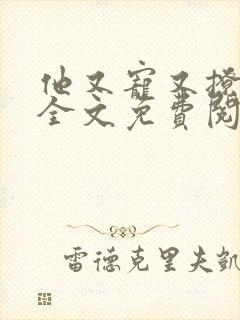 他又寵又撩
全文免費閱
雷德克里夫凱